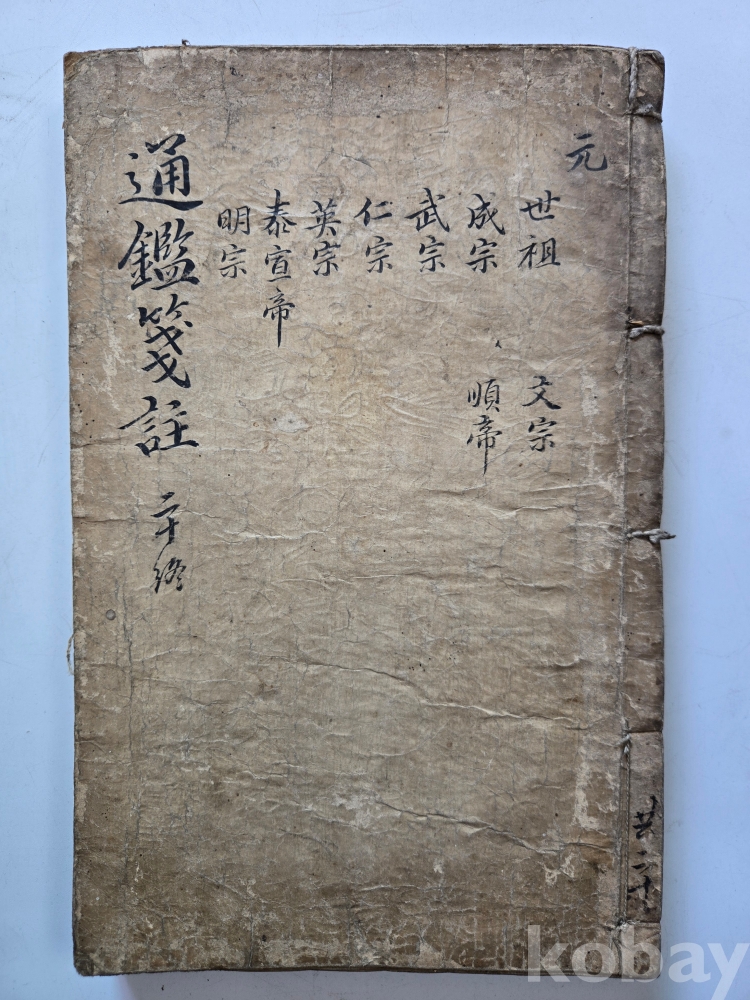 元
世祖
成宗
武宗
仁宗
英宗
泰宣帝
明宗
文宗
順帝
通鑑箋註 二十終
共二十
kobay